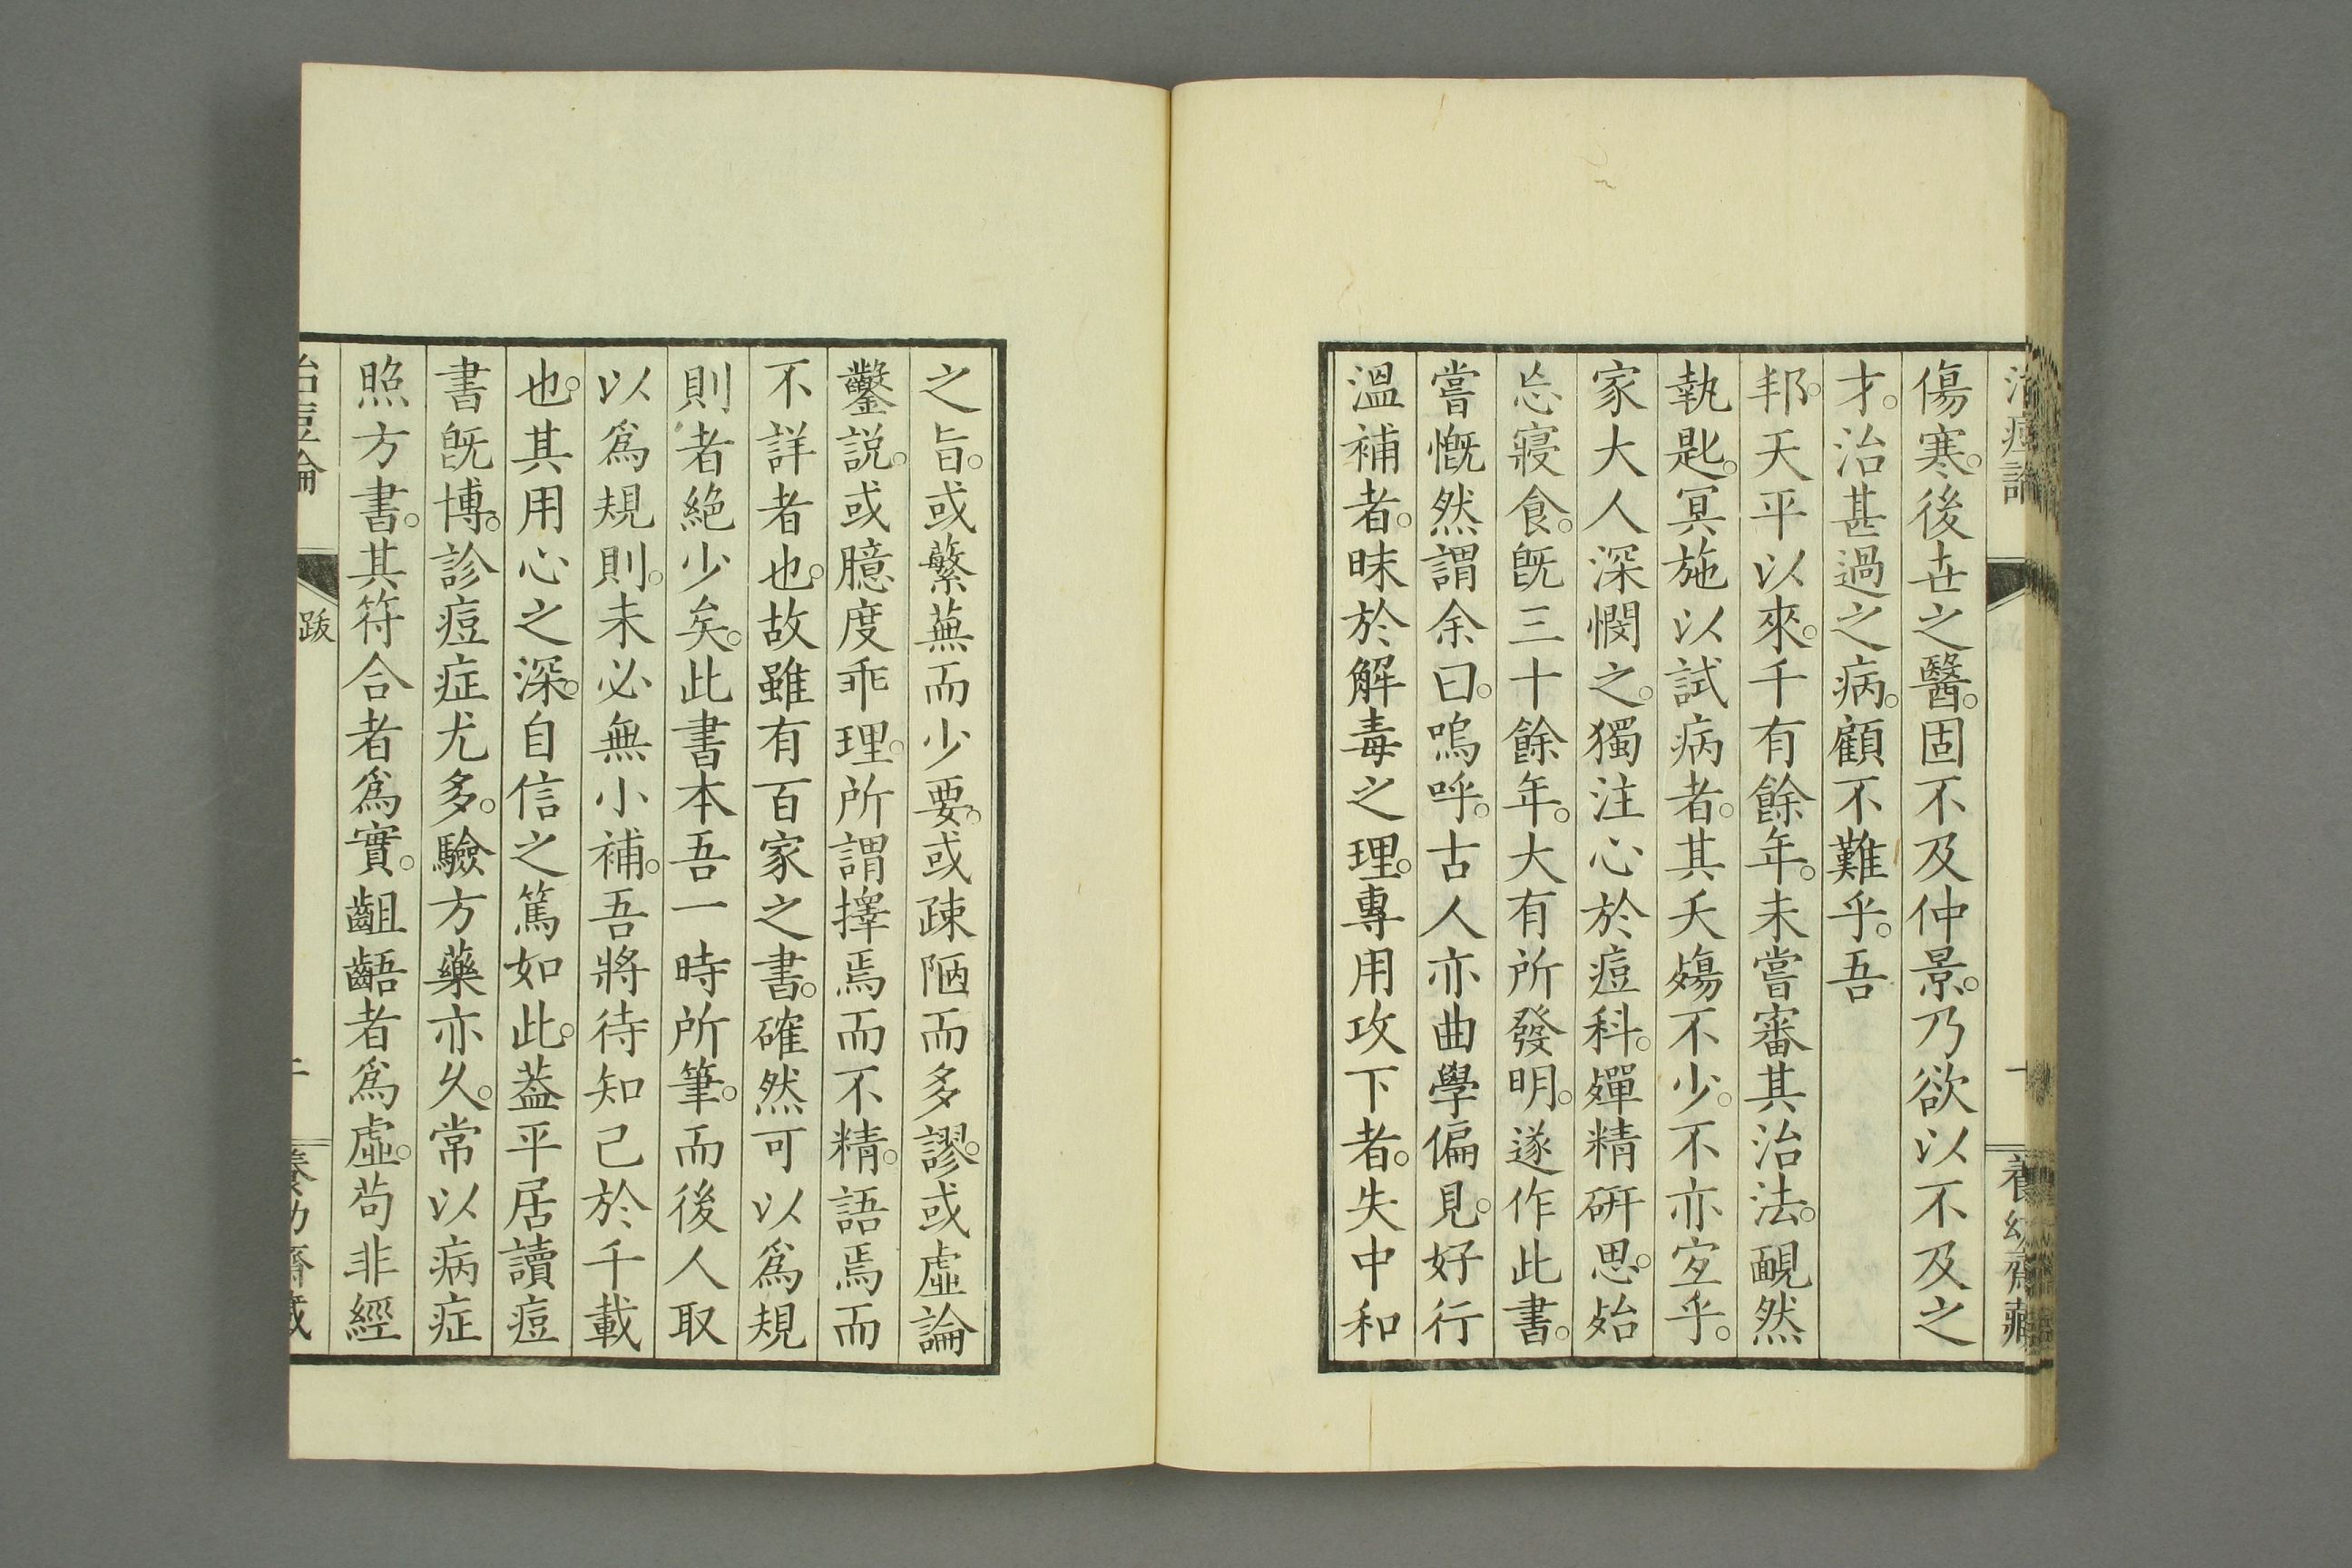 治痘論 一 養幼齋藏
傷寒。後世之醫。固不及仲景。乃欲以不及之
才。治甚過之病。顧不難乎。吾
邦。天平以來。千有餘年。未嘗審其治法。靦然
執匙。冥施以試病者。其夭殤不少。不亦宜乎。
家大人深憫之。獨注心於痘科。殫精研思。殆
忘寢食。既三十餘年。大有所發明。遂作此書。
嘗慨然謂余曰。嗚呼。古人亦曲學偏見。好行
溫補者。昧於解毒之理。專用攻下者。失中和
之旨。或蘩蕪而少要。或疎陋而多謬。或虛論
鑿説。或臆度乖理。所謂擇焉而不精。語焉而
不詳者也。故雖有百家之書。確然可以爲規
則者絶少矣。此書本吾一時所筆。而後人取
以爲規則。未必無小補。吾將待知己於千載
也。其用心之深。自信之篤如此。蓋平居讀痘
書既博。診痘症尤多。驗方藥亦久。常以病症
照方書。其符合者爲實。齟齬者爲虛。苟非經
治痘論 跋 養幼齋藏